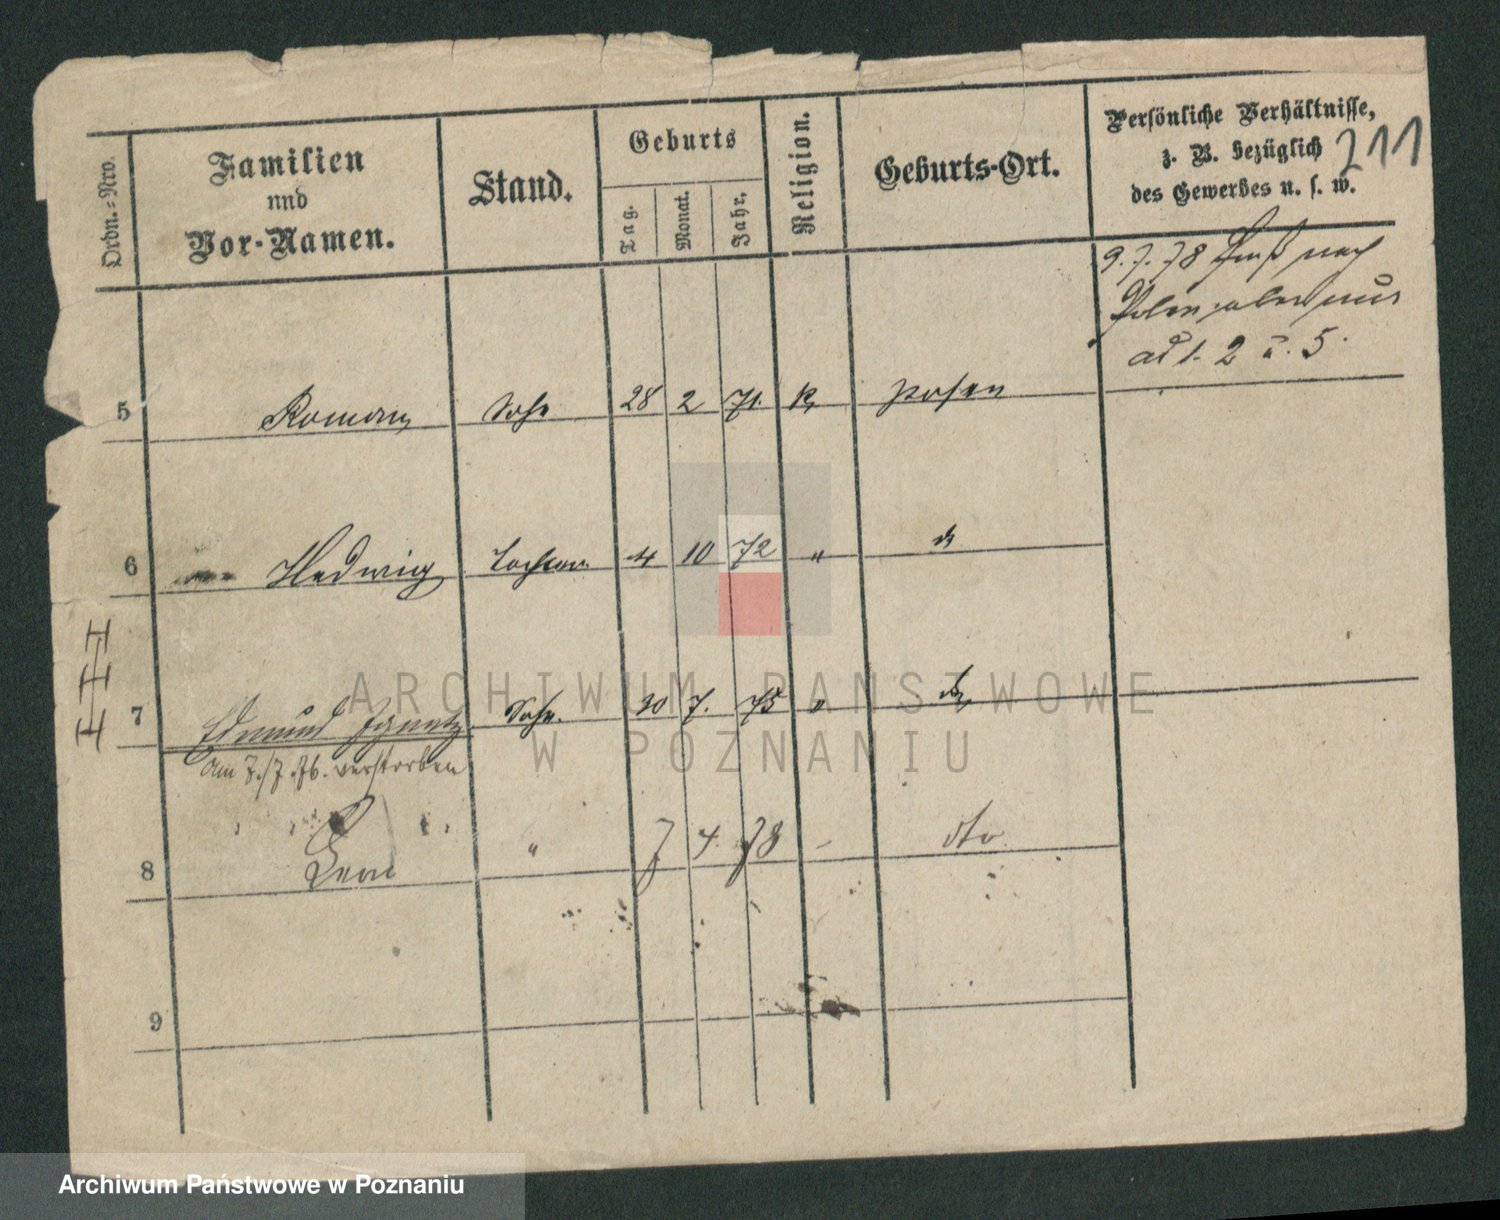 Ordn.-Nro.
Familien
und
Vor-Namen.
Stand.
Geburts
Tag.
Monat.
Jahr.
Religion.
Geburts-Ort.
Persönliche Verhältnisse,
z. B. bezüglich
des Gewerbes u. s. w.
211
9.7.78 Paß nach
Polen aber nur
ad 1. 2 u. 5.
5 Roman Sohn 28 2 71. K. Posen
6 Hedwig Tochter 4 10 72 " do
7 Edmund Ignatz Sohn. 30 7. 75 " do
am 7./7.76. verstorben
8 Leon " 7 4. 78 - dto
9
ARCHIWUM PAŃSTWOWE
W POZNANIU
Archiwum Państwowe w Poznaniu